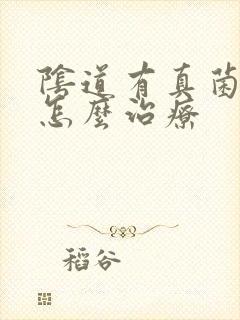 陰道有真菌
怎麼治療
稻谷